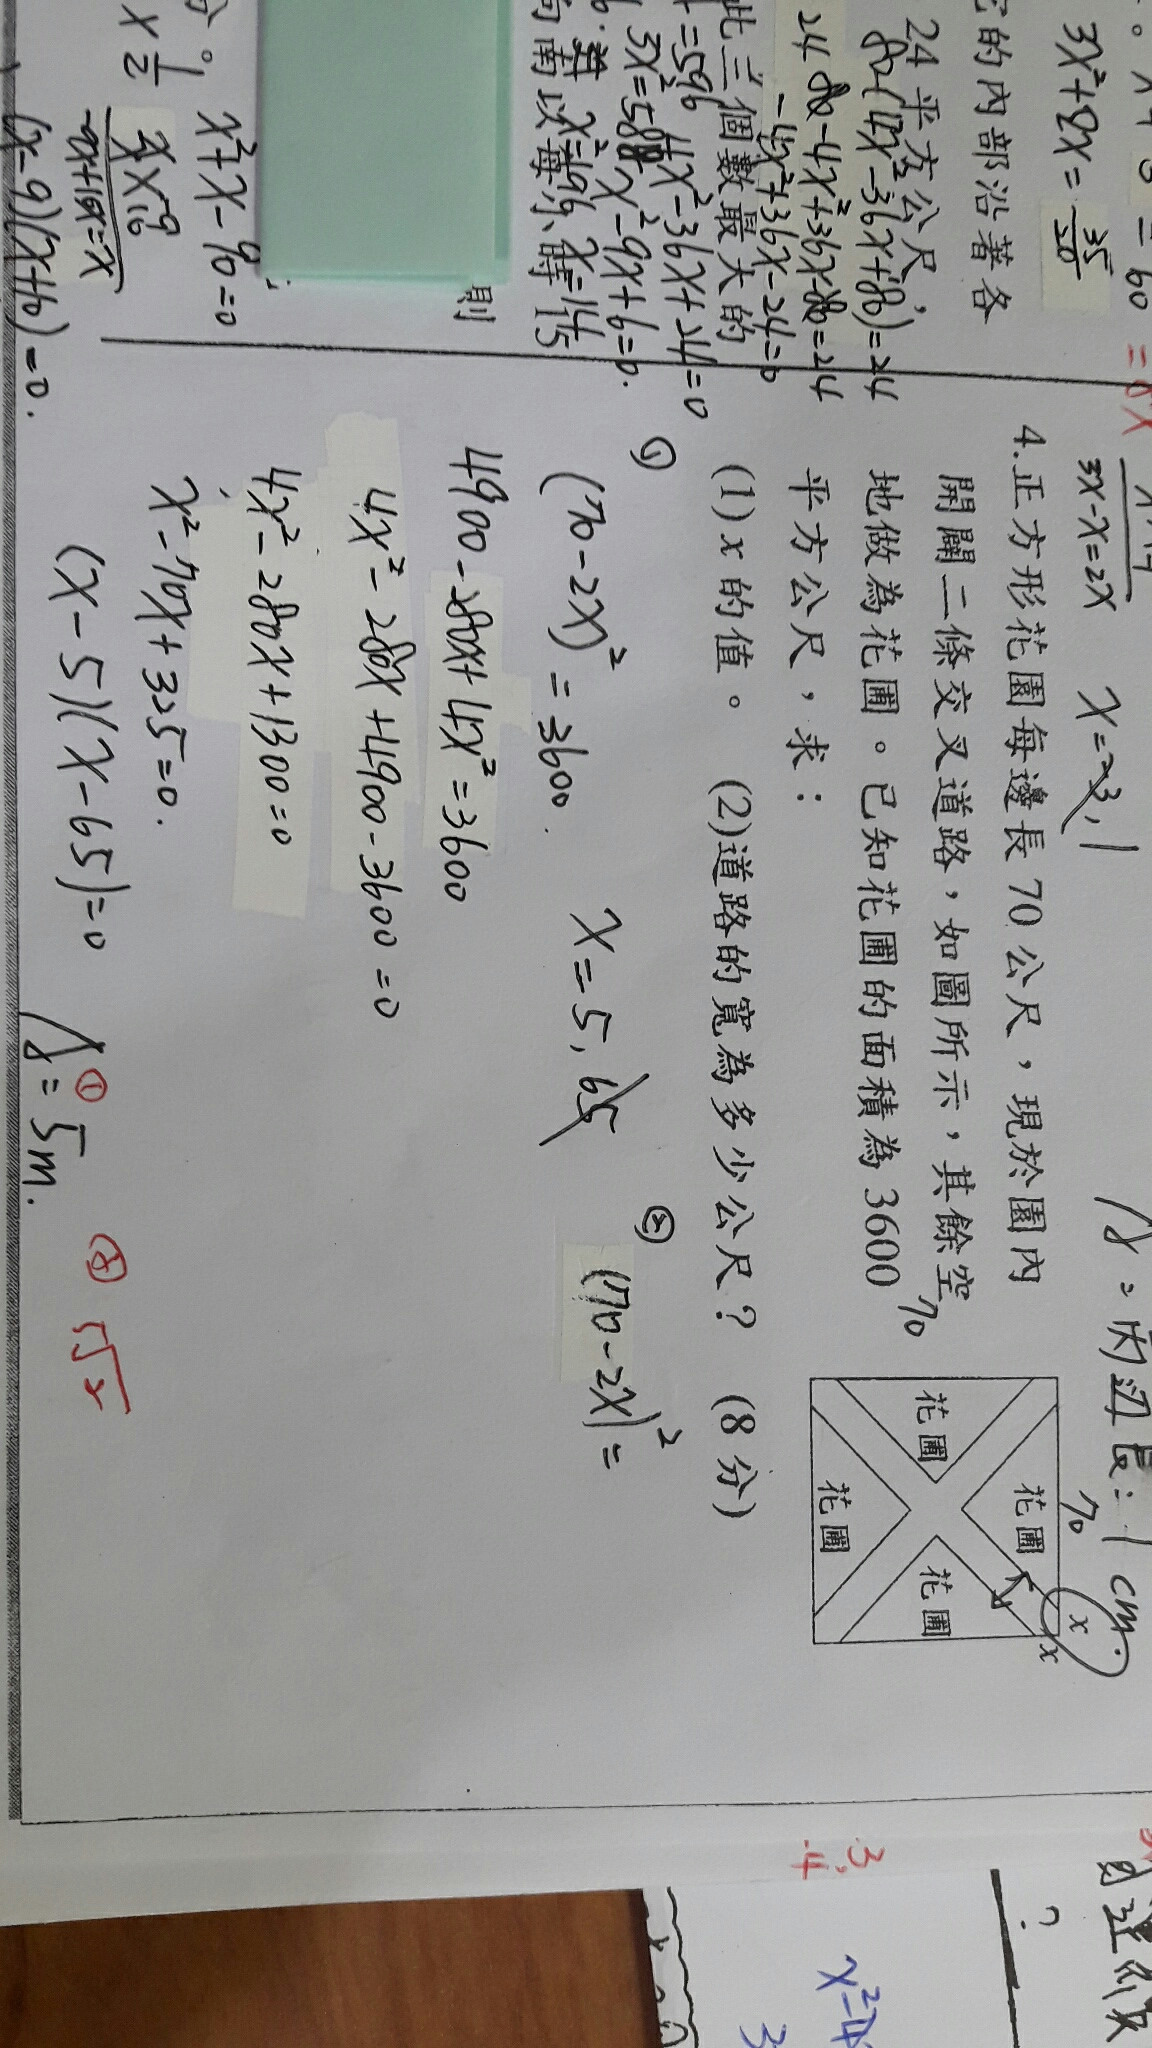 = 60
= 8x
3x²+8x = 35/20
它的內部沿著各
24平方公尺，
80-(4x²-36x+80)=24
24 80-4x²+36x-80=24
-4x²+36x-24=0
此三個數最大的
4x²-36x+24=0
=596
3x²=588
x²-9x+6=0.
x²=196 x=14
向南以每小時15
則
x²+x-90=0
x -9
x 10
-9x+10x=x
(x-9)(x+10)=0.
3x-x=2x
x=-3, 1
A：內邊長：1 cm.
4.正方形花園每邊長70公尺，現於園內
開闢二條交叉道路，如圖所示，其餘空
地做為花圃。已知花圃的面積為3600
平方公尺，求：
(1) x 的值。 (2)道路的寬為多少公尺？ (8分)
70
70
x
x
花圃
花圃
花圃
花圃
①
(70-2x)²=3600.
4900-280x+4x²=3600
4x²-280x+4900-3600=0
4x²-280x+1300=0
x²-70x+325=0.
(x-5)(x-65)=0
x=5, 65
②
(70-2x)²=
A：① =5m.
②
3.
4
?
3